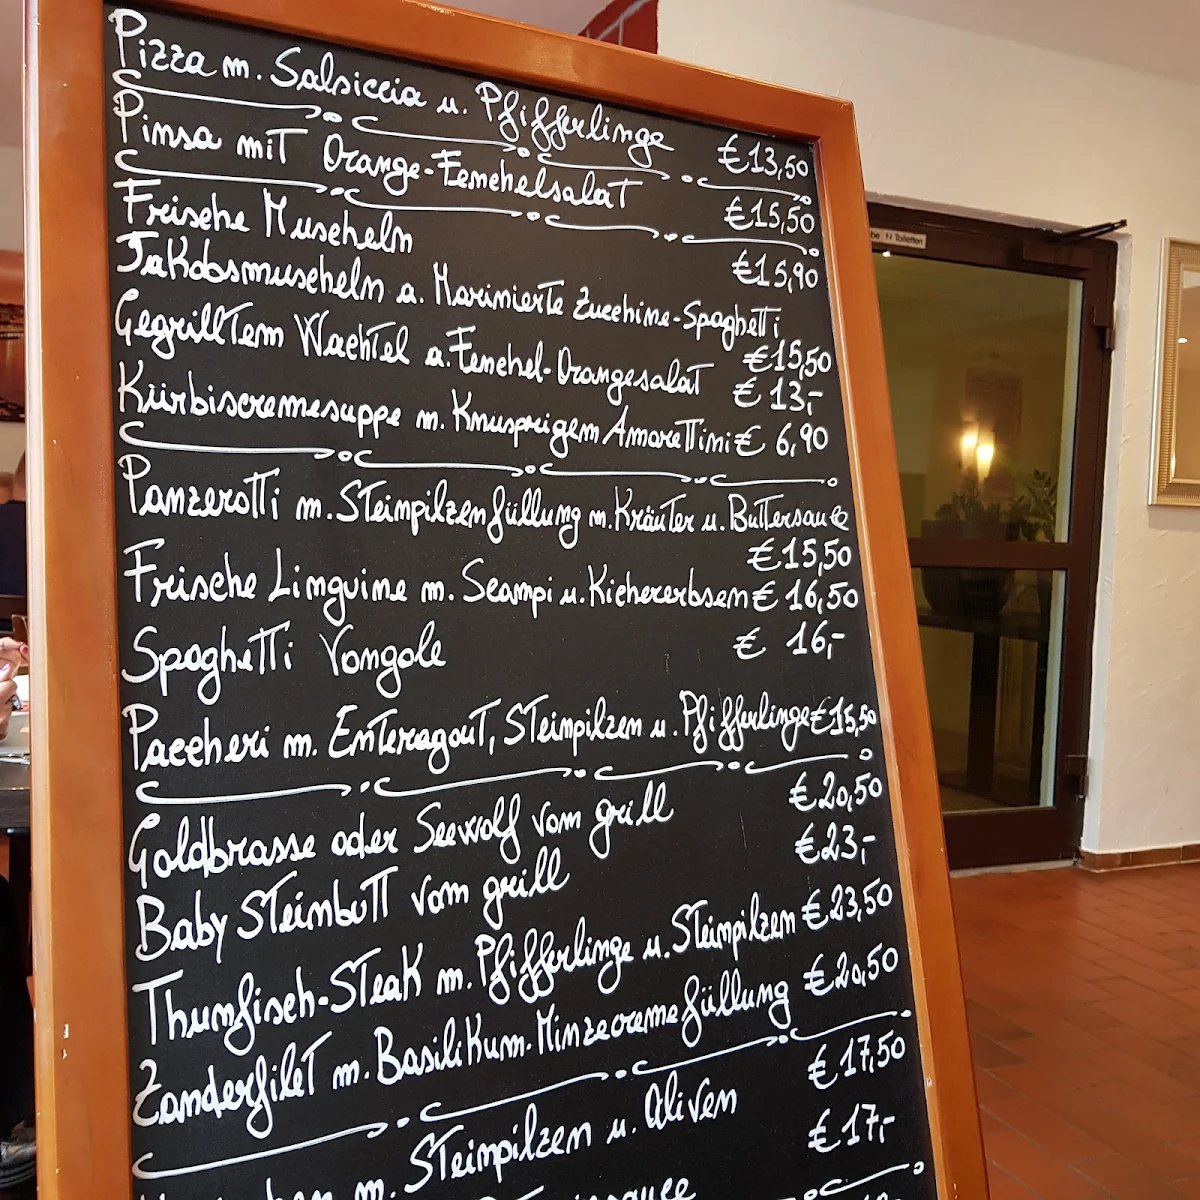 Pizza m. Salsiccia u. Pfifferlinge €13,50
Pinsa mit Orange-Fenchelsalat €15,50
Frische Muscheln €15,90
Jakobsmuscheln a. Marinierte Zucchine-Spaghetti
€15,50
Gegrilltem Wachtel a. Fenchel-Orangesalat € 13,-
Kürbiscremesuppe m. Knusprigem Amorettini € 6,90
Panzerotti m. Steinpilzenfüllung m. Kräuter u. Buttersauce
€15,50
Frische Linguine m. Scampi u. Kichererbsen € 16,50
Spaghetti Vongole € 16,-
Paccheri m. Entenragout, Steinpilzen u. Pfifferlinge €15,50
Goldbrasse oder Seewolf vom grill €20,50
Baby Steinbutt vom grill €23,-
Thunfisch-Steak m. Pfifferlinge u. Steinpilzen €23,50
Zanderfilet m. Basilikum-Minzecremefüllung €20,50
m. Steinpilzen u. Oliven €17,50
€17,-
Toiletten